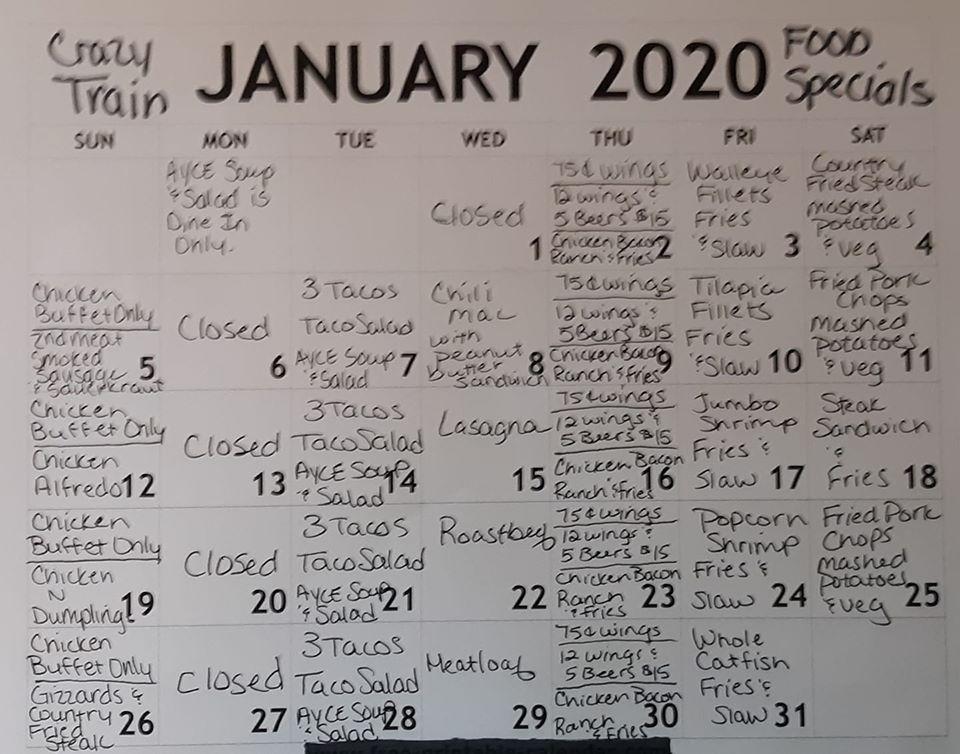 Crazy Train
JANUARY 2020
FOOD Specials
SUN MON TUE WED THU FRI SAT
AYCE Soup
& Salad is
Dine In
Only.
Closed
1
75¢ wings
12 wings &
5 Beers $15
Chicken Bacon
Ranch & fries 2
Walleye
Fillets
Fries
& Slaw 3
Country
Fried Steak
mashed
potatoes
& veg 4
Chicken
Buffet Only
2nd meat
Smoked
Sausage 5
& Sauerkraut
Closed
6
3 Tacos
Taco Salad
AYCE Soup 7
& Salad
Chili
mac
with
peanut
butter 8
Sandwich
75¢ wings
12 wings &
5 Beers $15
Chicken Bacon 9
Ranch & fries
Tilapia
Fillets
Fries
& Slaw 10
Fried Pork
Chops
Mashed
Potatoes
& veg 11
Chicken
Buffet Only
Chicken
Alfredo 12
Closed
13
3 Tacos
Taco Salad
AYCE Soup 14
& Salad
Lasagna
15
75¢ wings
12 wings &
5 Beers $15
Chicken Bacon
Ranch & fries 16
Jumbo
Shrimp
Fries &
Slaw 17
Steak
Sandwich
&
Fries 18
Chicken
Buffet Only
Chicken
N
Dumplings 19
Closed
20
3 Tacos
Taco Salad
AYCE Soup 21
& Salad
Roastbeef
22
75¢ wings
12 wings &
5 Beers $15
Chicken Bacon
Ranch 23
& fries
Popcorn
Shrimp
Fries &
Slaw 24
Fried Pork
Chops
mashed
potatoes
& veg 25
Chicken
Buffet Only
Gizzards &
Country 26
Fried
Steak
Closed
27
3 Tacos
Taco Salad
AYCE Soup 28
& Salad
Meatloaf
29
75¢ wings
12 wings &
5 Beers $15
Chicken Bacon
Ranch 30
& Fries
Whole
Catfish
Fries &
Slaw 31